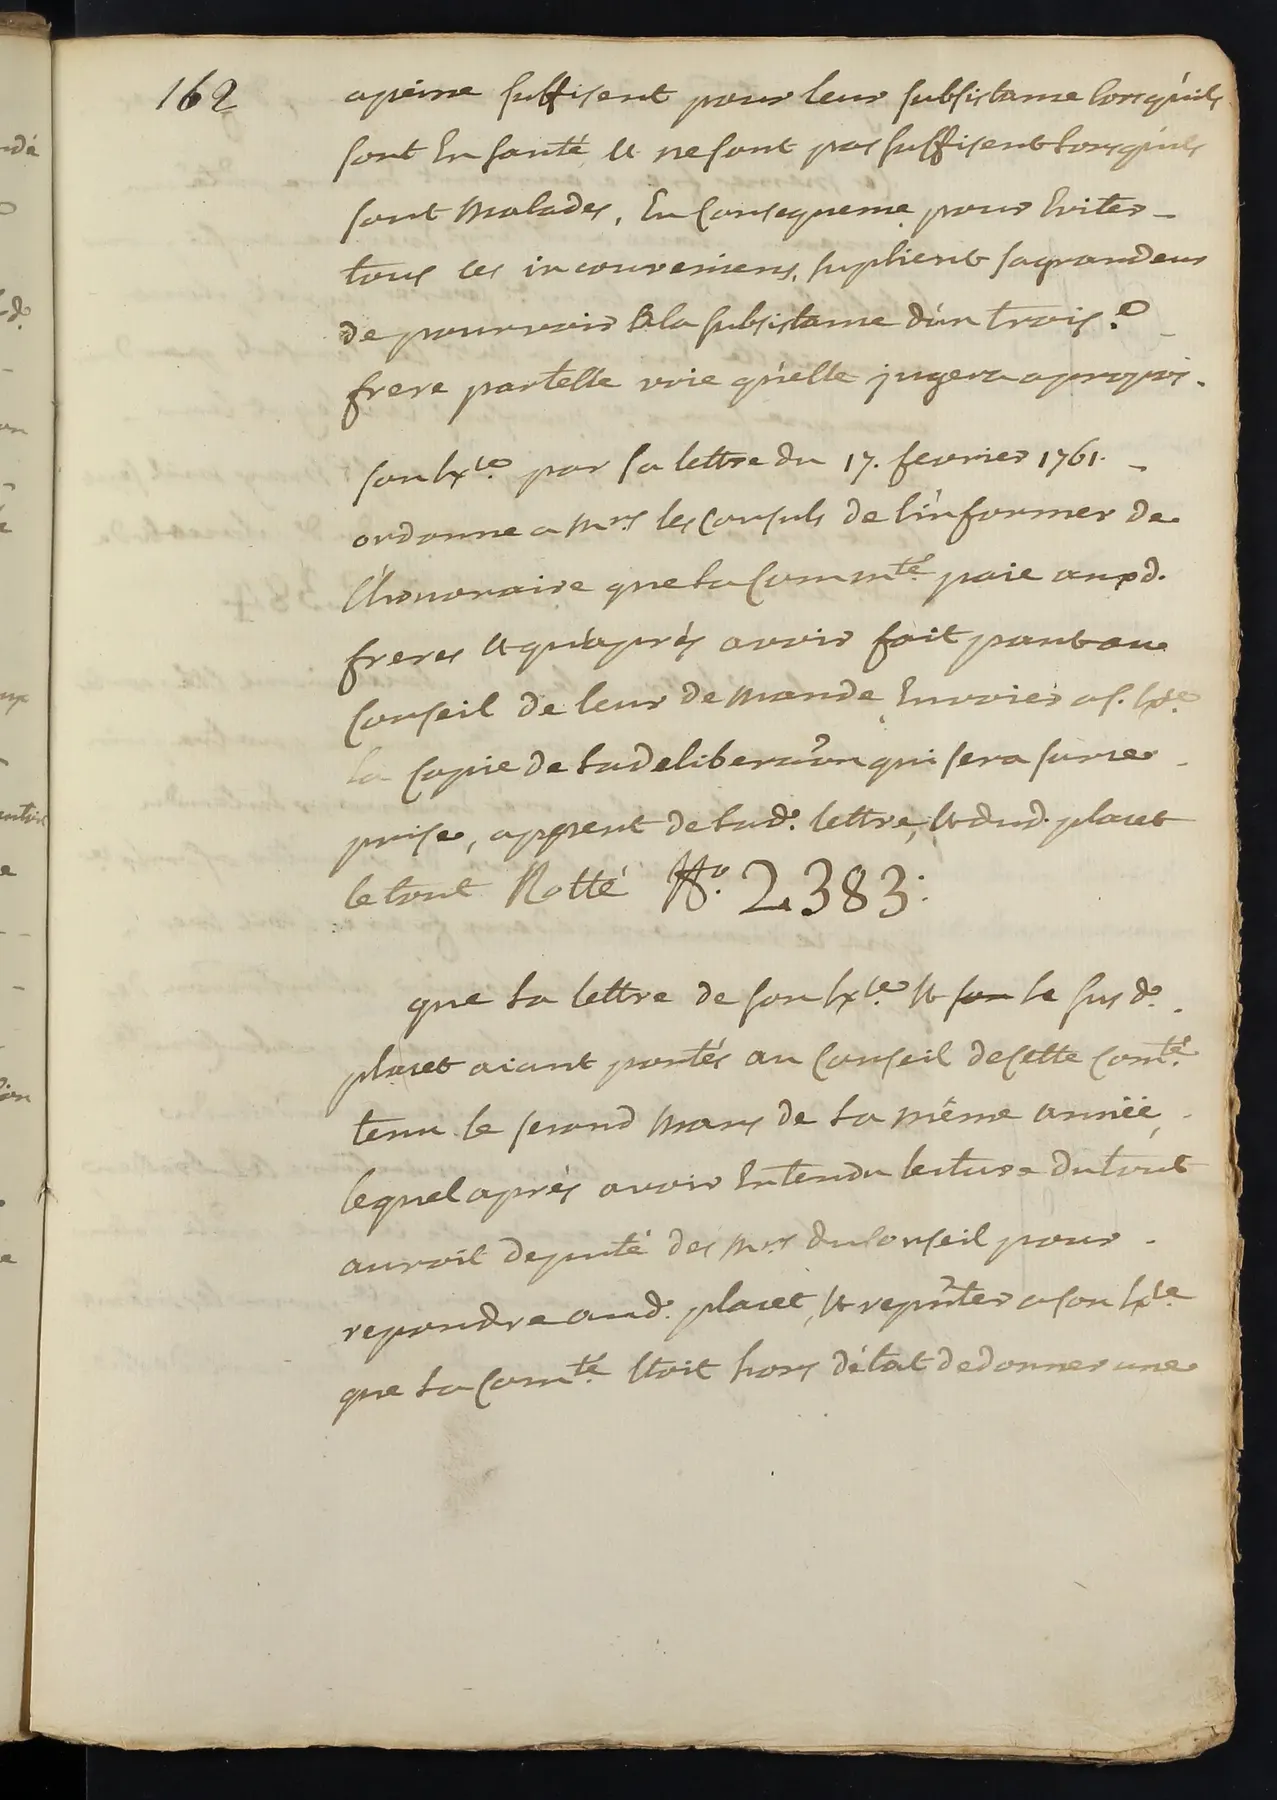 162
apeine suffisent pour leur subsistance lorsqu'ils
sont En santé, Et ne sont pas suffisent lorsqu'ils
sont Malades, En Consequence pour Eviter
tous ces inconveniens, suplient sa grandeur
de pourvoir a la subsistance d'un trois.e
frere par telle voie qu'elle jugera apropos.
son Ex.ce par sa lettre du 17. fevrier 1761.
ordonne a Mrs les Consuls de l'informer de
l'honoraire que la Comm.té paie aux d.
freres Et qu'aprés avoir fait part au
Conseil de leur demande Envoier a s. Ex.ce
la Copie de la deliberaon qui sera sur ce
prise, appert de lad.e lettre, Et dud. placet
le tout Notté N.o 2383:
que la lettre de son Ex.ce Et son le sus d.e
placet aiant portés au Conseil de Cette Com.té
tenu le second Mars de la même année,
lequel aprés avoir Entendu lecture du tout
auroit deputé des Mrs du Conseil pour
repondre aud. placet, Et repnter a son Ex.ce
que la Com.té Etoit hors d'état de donner une